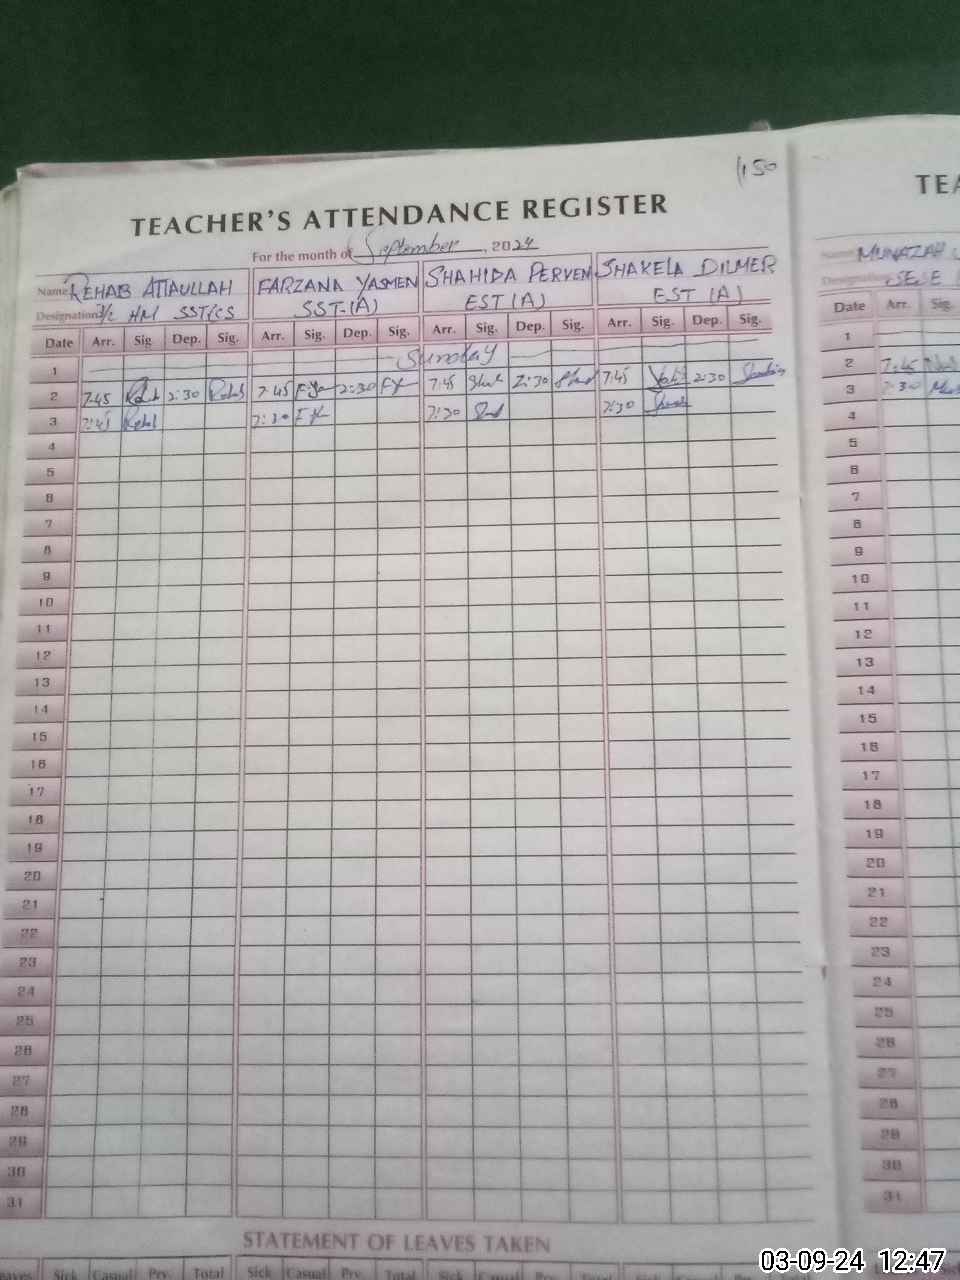 1150
TEACHER'S ATTENDANCE REGISTER
TEA
For the month of September, 2024
Name REHAB ATTAULLAH FARZANA YASMEN SHAHIDA PERVEN SHAKELA DILMER
Name MUNAZAH
Designation I/c HM SST(CS SST-(A) EST (A) EST (A)
Designation SESE
Date Arr. Sig Dep. Sig. Arr. Sig. Dep. Sig. Arr. Sig. Dep. Sig. Arr. Sig. Dep. Sig.
Date Arr. Sig.
1 Sunday
1
2 7:45 2:30 7:45 2:30 7:45 2:30 7:45 2:30
2 7:45
3 7:45 7:30 7:30 7:30
3 7:30
4
4
5
5
6
6
7
7
8
8
9
9
10
10
11
11
12
12
13
13
14
14
15
15
16
16
17
17
18
18
19
19
20
20
21
21
22
22
23
23
24
24
25
25
26
26
27
27
28
28
29
29
30
30
31
31
STATEMENT OF LEAVES TAKEN
Leaves Sick Casual Prv. Total Sick Casual Prv. Total Sick Casual Prv. Total Sick Casual Prv. Total
03-09-24 12:47